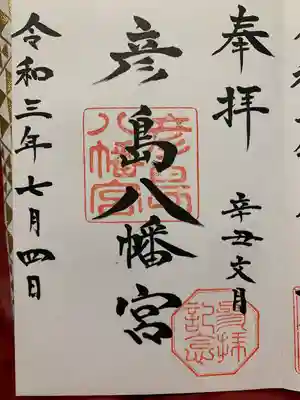 奉拝
辛丑文月
彦島八幡宮
彦島
八幡宮
令和三年七月四日
参拝
記念